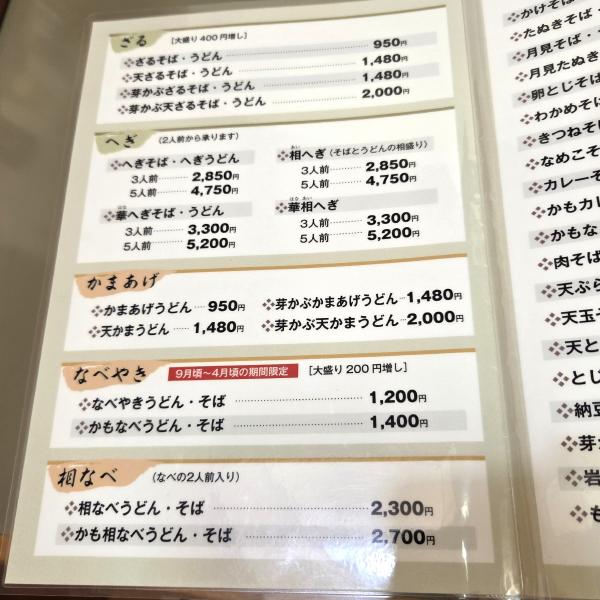 ざる [大盛り400円増し]
❖ざるそば・うどん 950円
❖天ざるそば・うどん 1,480円
❖芽かぶざるそば・うどん 1,480円
❖芽かぶ天ざるそば・うどん 2,000円
へぎ (2人前から承ります)
❖へぎそば・へぎうどん
3人前 2,850円
5人前 4,750円
❖相へぎ(そばとうどんの相盛り)
あい
3人前 2,850円
5人前 4,750円
❖華へぎそば・うどん
はな
3人前 3,300円
5人前 5,200円
❖華相へぎ
はな あい
3人前 3,300円
5人前 5,200円
かまあげ
❖かまあげうどん 950円
❖天かまうどん 1,480円
❖芽かぶかまあげうどん 1,480円
❖芽かぶ天かまうどん 2,000円
なべやき 9月頃〜4月頃の期間限定 [大盛り200円増し]
❖なべやきうどん・そば 1,200円
❖かもなべうどん・そば 1,400円
相なべ (なべの2人前入り)
❖相なべうどん・そば 2,300円
❖かも相なべうどん・そば 2,700円
❖かけそば
❖たぬきそば
❖月見そば・
❖月見たぬき
❖卵とじそば
❖わかめそば
❖きつねそば
❖なめこそ
❖カレーそ
❖かもカレ
❖かもな
❖肉そば
❖天ぷら
❖天玉そ
❖天と
❖とじ
❖納豆
❖芽か
❖岩
❖も